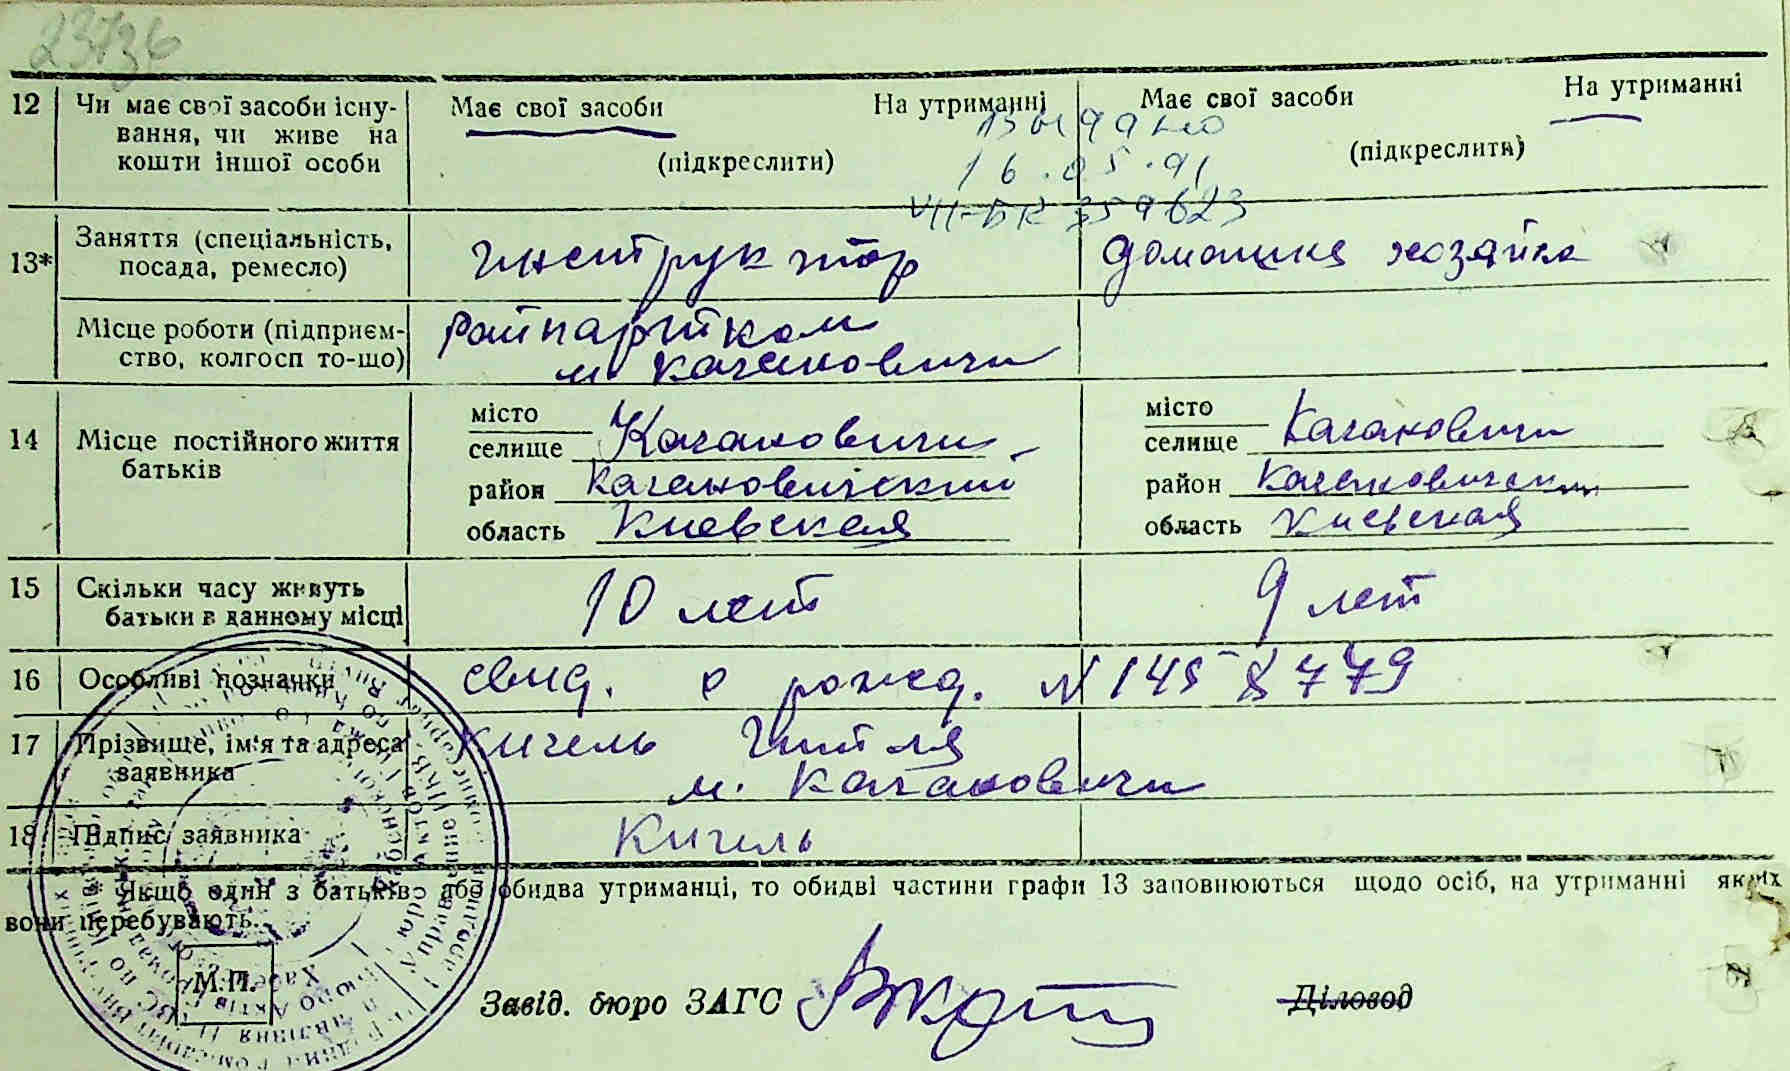 23736
12 Чи має свої засоби існу- Має свої засоби На утриманні Має свої засоби На утриманні
вання, чи живе на
кошти іншої особи (підкреслити) (підкреслити)
16.05.91
VII-БК 359623
13* Заняття (спеціальність, Инструктор домашня хозяйка
посада, ремесло)
Місце роботи (підприєм- Райпартком
ство, колгосп то-що) м. Каганович
14 Місце постійного життя місто Кагановичи місто Кагановичи
батьків селище селище
район Кагановический район Кагановически
область Киевская область Киевская
15 Скільки часу живуть 10 лет 9 лет
батьки в данному місці
16 Особливі позначки свид. о рожд. N 1458779
17 Прізвище, ім'я та адреса Кигель Гитля
заявника м. Кагановичи
18 Підпис заявника Кигель
Якщо один з батьків або обидва утриманці, то обидві частини графи 13 заповнюються щодо осіб, на утриманні яких
вони перебувають.
М.П.
Завід. бюро ЗАГС Діловод